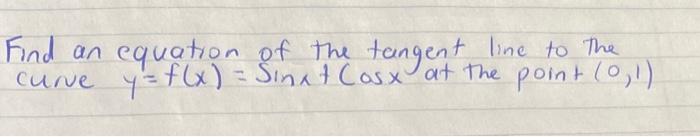 Find an equation of the tangent line to the
curve y=f(x) = Sinx + Cosx at the point (0,1)